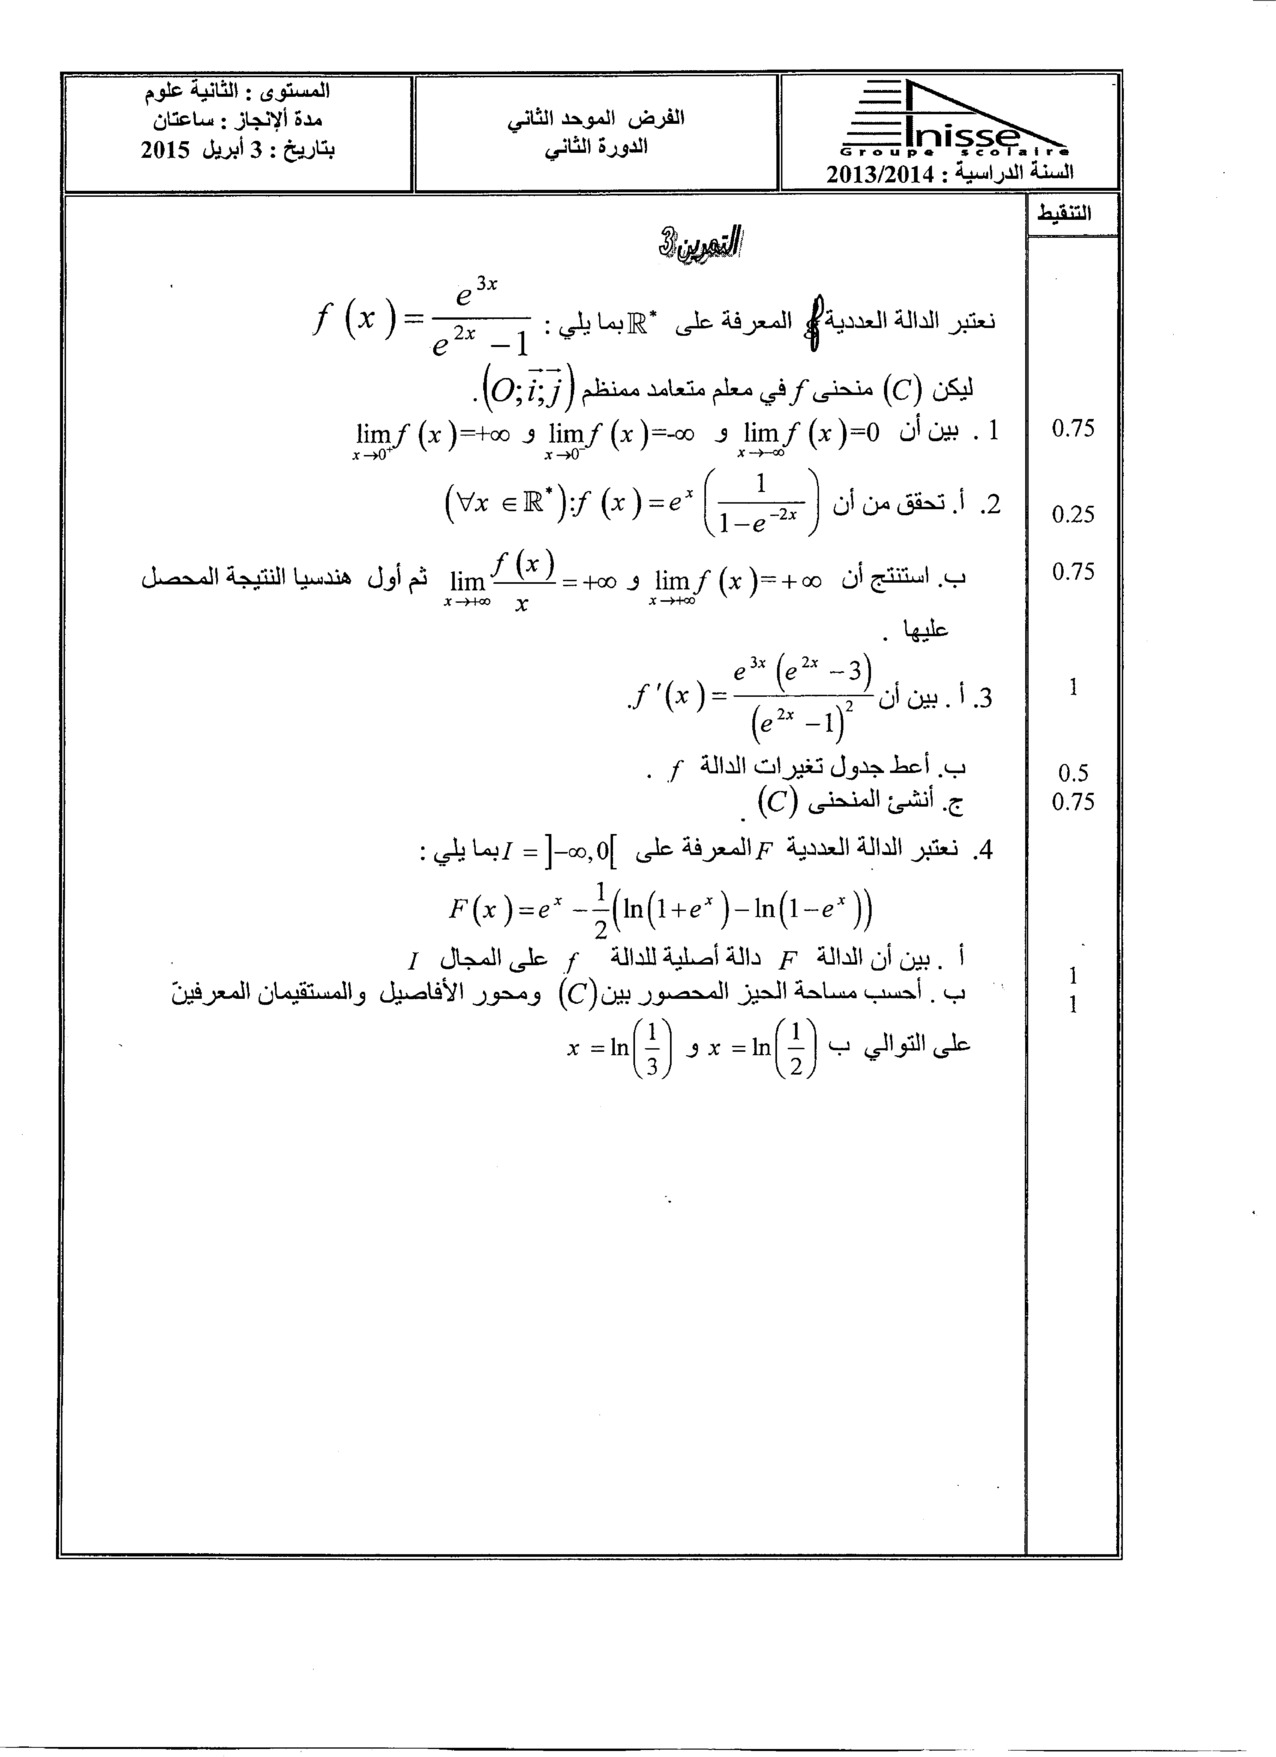 المستوى : الثانية علوم
مدة ألإنجاز : ساعتان
بتاريخ : 3 أبريل 2015
الفرض الموحد الثاني
الدورة الثاني
Inisse
Groupe scolaire
السنة الدراسية : 2013/2014
التنقيط
التمرين3
نعتبر الدالة العددية f المعرفة على ℝ* بما يلي : f(x)=e^{3x}/(e^{2x}-1)
ليكن (C) منحنى f في معلم متعامد ممنظم (O;i⃗;j⃗).
1 . بين أن lim_{x→-∞} f(x)=0 و lim_{x→0⁻} f(x)=-∞ و lim_{x→0⁺} f(x)=+∞ 0.75
2. أ. تحقق من أن (∀x∈ℝ*):f(x)=e^x(1/(1-e^{-2x})) 0.25
ب. استنتج أن lim_{x→+∞} f(x)=+∞ و lim_{x→+∞} f(x)/x=+∞ ثم أول هندسيا النتيجة المحصل 0.75
عليها .
3. أ . بين أن f'(x)=e^{3x}(e^{2x}-3)/(e^{2x}-1)². 1
ب. أعط جدول تغيرات الدالة f . 0.5
ج. أنشئ المنحنى (C) . 0.75
4. نعتبر الدالة العددية F المعرفة على I=]-∞,0[ بما يلي :
F(x)=e^x-1/2(ln(1+e^x)-ln(1-e^x))
أ . بين أن الدالة F دالة أصلية للدالة f على المجال I 1
ب . أحسب مساحة الحيز المحصور بين (C) ومحور الأفاصيل والمستقيمان المعرفين 1
على التوالي ب x=ln(1/2) و x=ln(1/3)